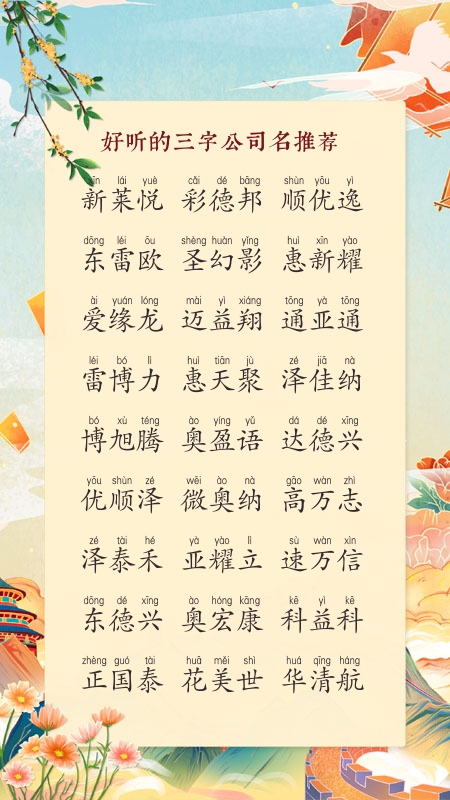 好听的三字公司名推荐
xīn lái yuè cǎi dé bāng shùn yōu yì
新莱悦 彩德邦 顺优逸
dōng léi ōu shèng huàn yǐng huì xīn yào
东雷欧 圣幻影 惠新耀
ài yuán lóng mài yì xiáng tōng yà tōng
爱缘龙 迈益翔 通亚通
léi bó lì huì tiān jù zé jiā nà
雷博力 惠天聚 泽佳纳
bó xù téng ào yíng yǔ dá dé xīng
博旭腾 奥盈语 达德兴
yōu shùn zé wēi ào nà gāo wàn zhì
优顺泽 微奥纳 高万志
zé tài hé yà yào lì sù wàn xìn
泽泰禾 亚耀立 速万信
dōng dé xīng ào hóng kāng kē yì kē
东德兴 奥宏康 科益科
zhèng guó tài huā měi shì huá qīng háng
正国泰 花美世 华清航